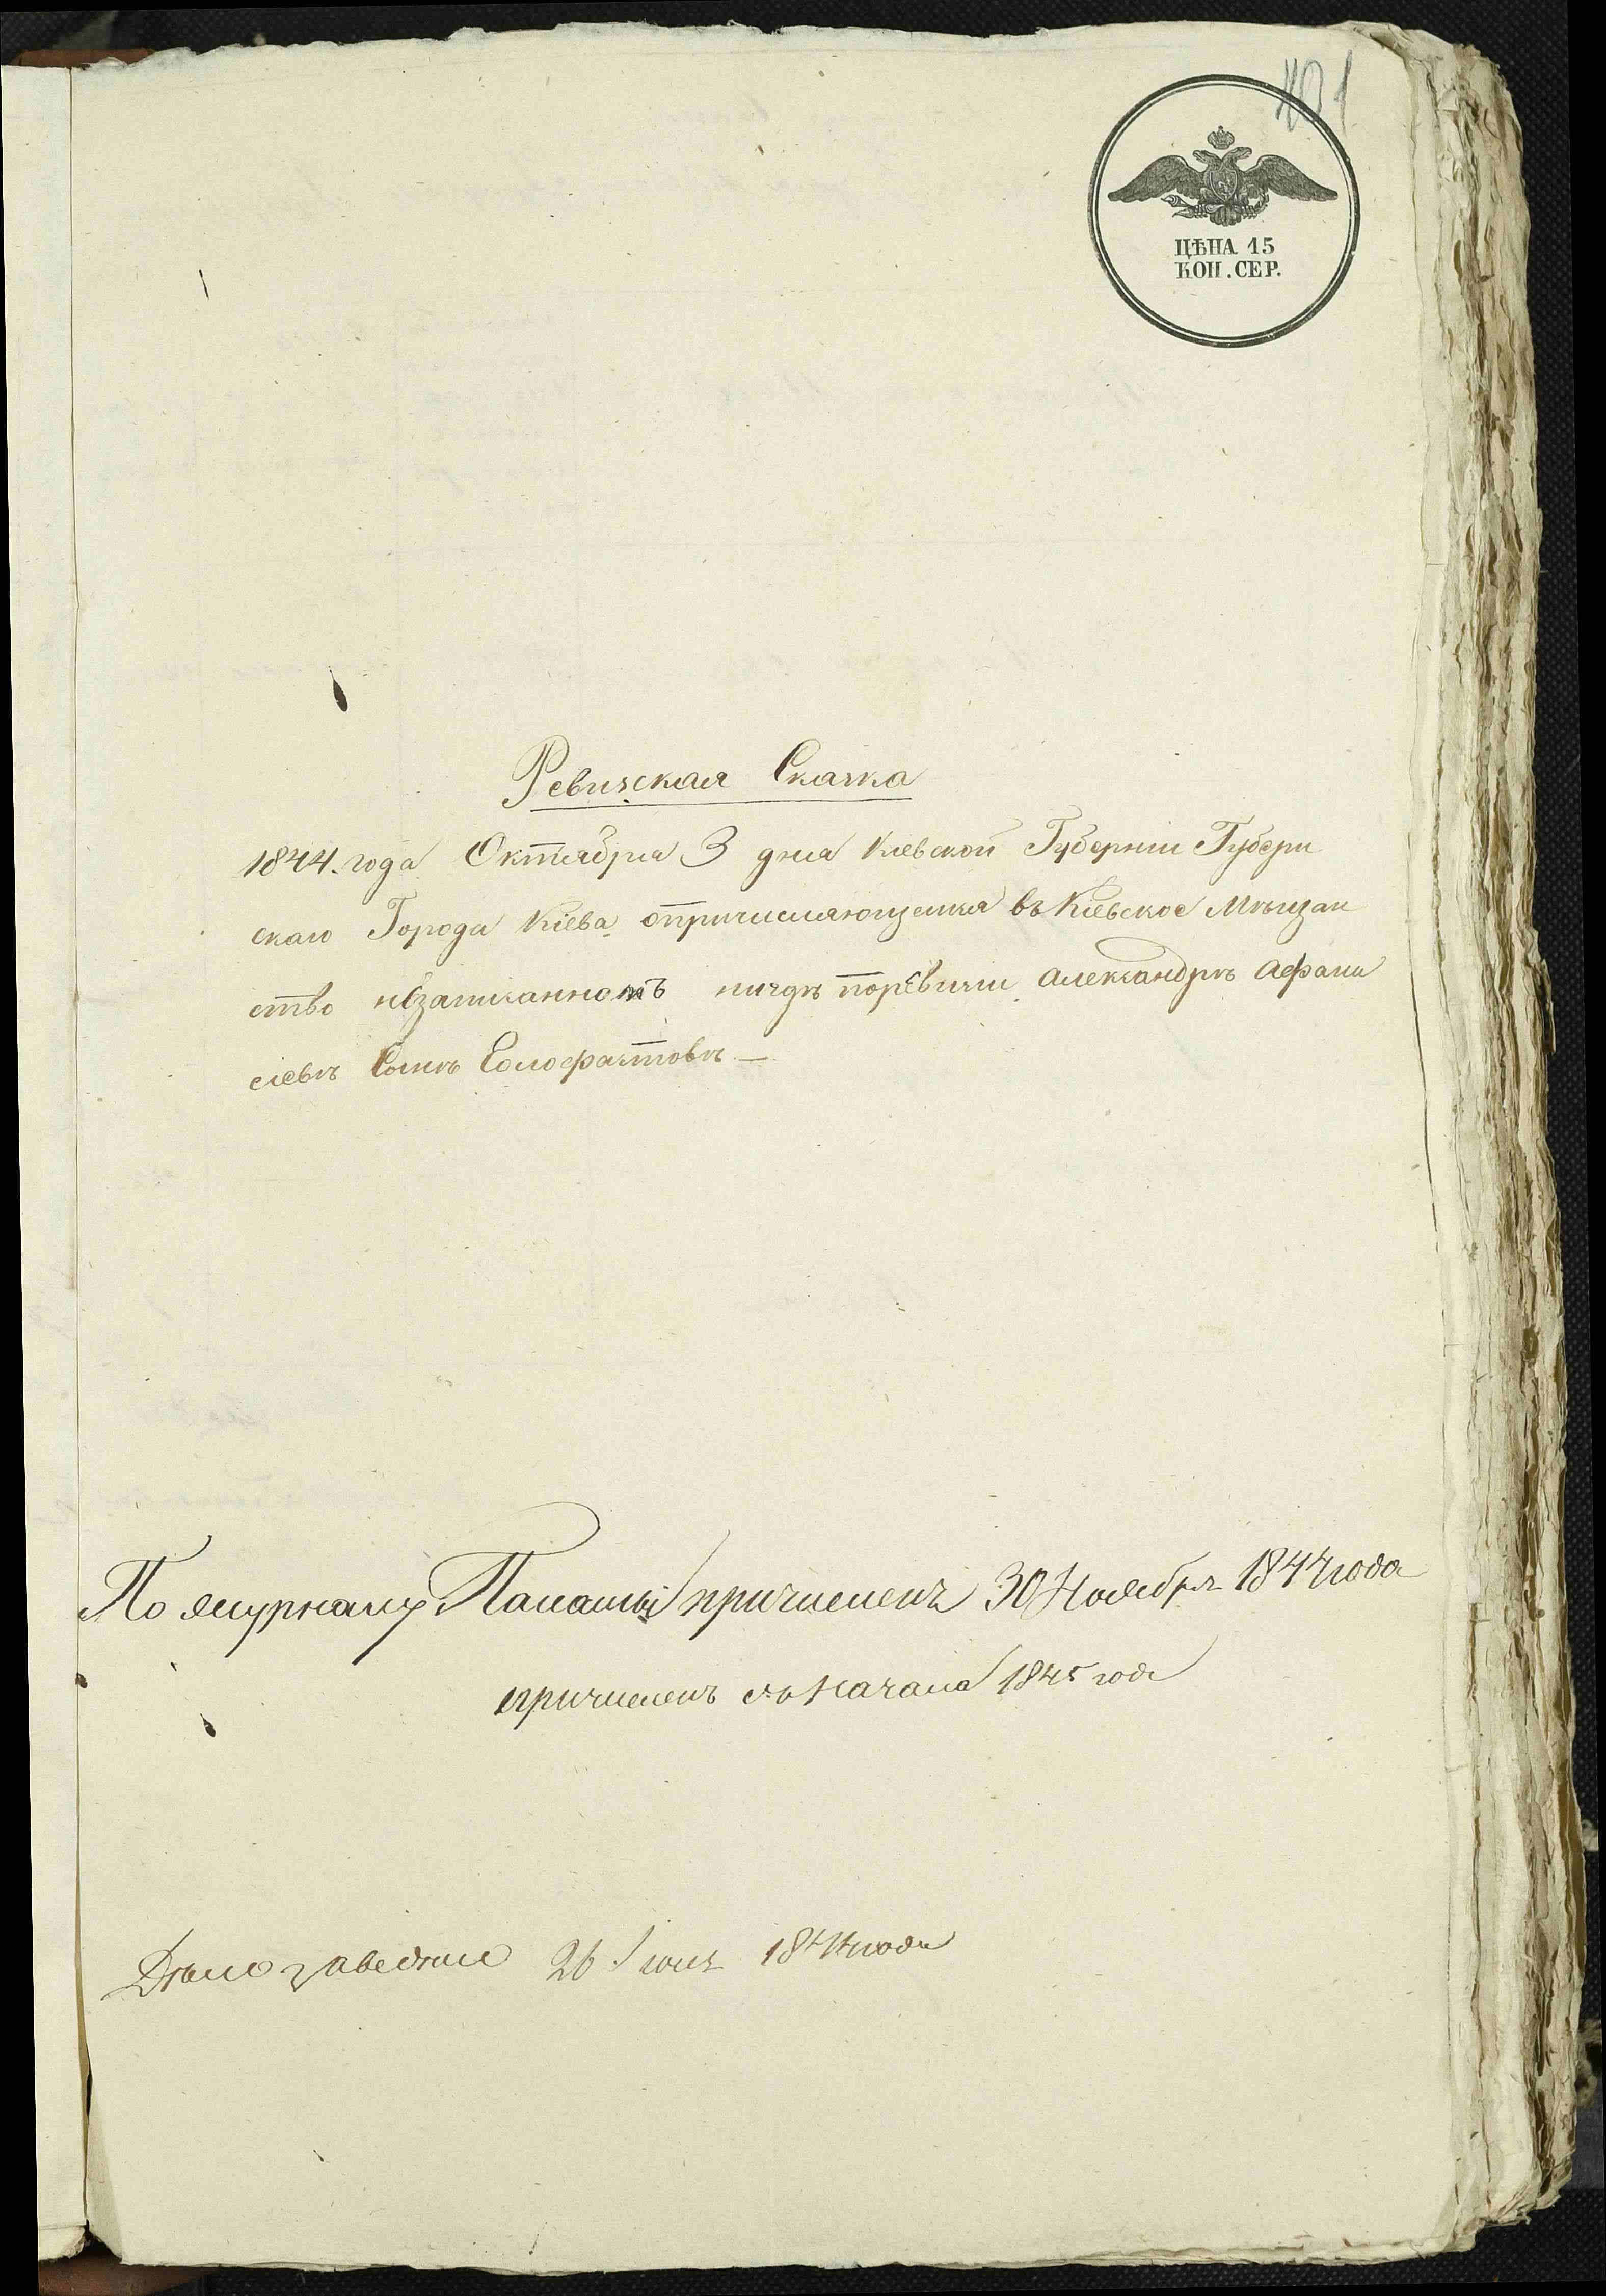 401
ЦѢНА 15
КОП. СЕР.
Ревизская Сказка
1844. года Октября 3 дня Кіевской Губерніи Губерн
скаго Города Кіева опричисляющемся въ Кіевское Мѣщан
ство незаписанномъ нигдѣ поревизіи Александръ Афана
сіевъ Сынъ Голофастовъ —
По журналу Палаты причисленъ 30 Ноября 1844 года
причисленъ съ Начала 1845 года
Дѣло заведено 26 1844 года